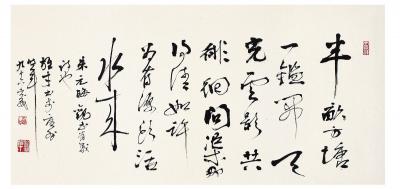 半畝方塘
一鑑開天
光雲影共
徘徊問渠那
得清如許
為有源頭活
水来
朱元晦觀書有感
詩也
九十六歲